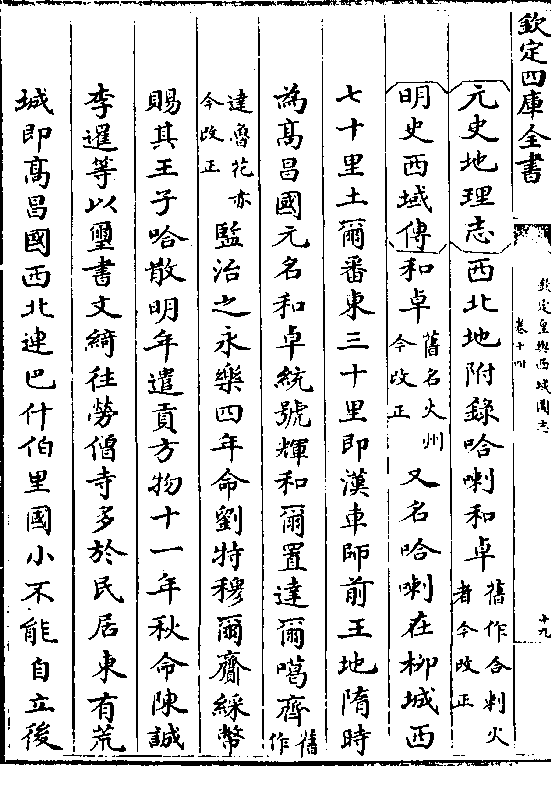 欽定四庫全書
欽定皇輿西域圖志
卷十四
十九
元史地理志西北地附錄哈喇和卓舊作合剌火者今改正
明史西域傳和卓舊名火州今改正又名哈喇在柳城西
七十里土爾番東三十里即漢車師前王地隋時
為高昌國元名和卓統號輝和爾置達爾噶齊舊作
達魯花赤今改正監治之永樂四年命劉特穆爾齎綵幣
賜其王子哈散明年遣貢方物十一年秋命陳誠
李暹等以璽書文綺往勞僧寺多於民居東有荒
城即高昌國西北連巴什伯里國小不能自立後